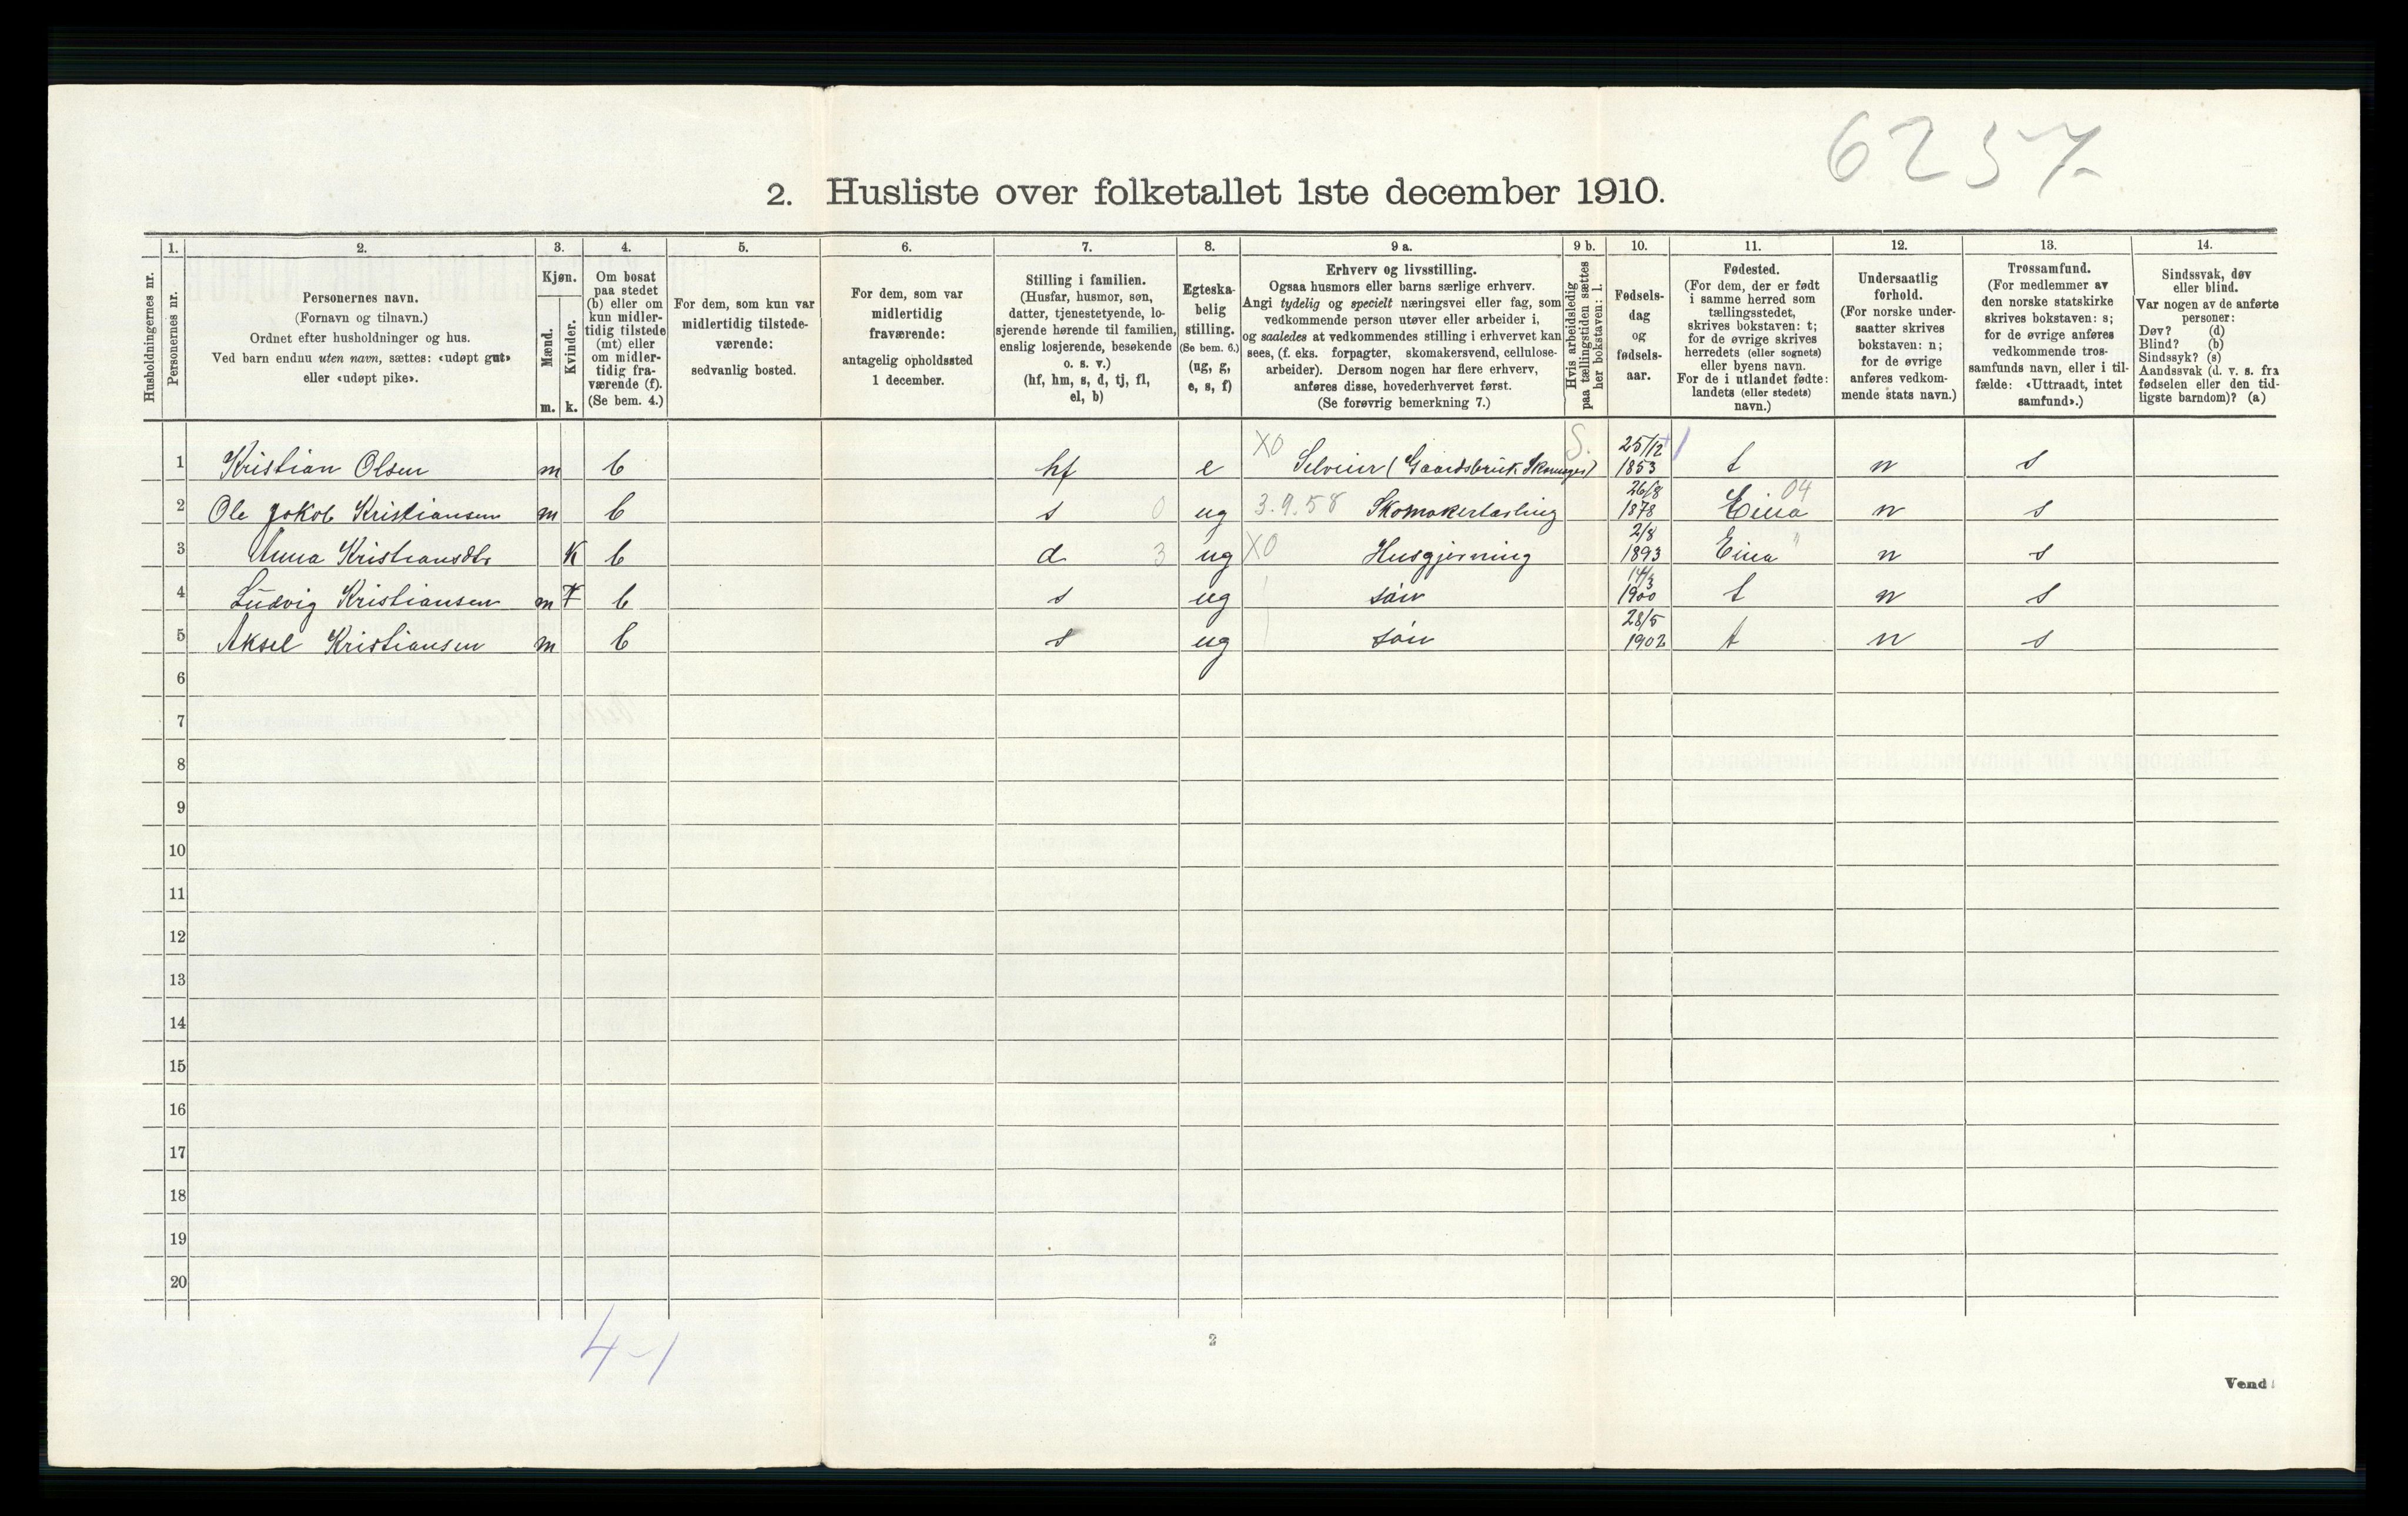 6257-
2. Husliste over folketallet 1ste december 1910.
Husholdningernes nr.
1.
Personernes nr.
2.
Personernes navn.
(Fornavn og tilnavn.)
Ordnet efter husholdninger og hus.
Ved barn endnu uten navn, sættes: «udøpt gut»
eller «udøpt pike».
3.
Kjøn.
Mænd.
m.
Kvinder.
k.
4.
Om bosat
paa stedet
(b) eller om
kun midler-
tidig tilstede
(mt) eller
om midler-
tidig fra-
værende (f).
(Se bem. 4.)
5.
For dem, som kun var
midlertidig tilstede-
værende:
sedvanlig bosted.
6.
For dem, som var
midlertidig
fraværende:
antagelig opholdssted
1 december.
7.
Stilling i familien.
(Husfar, husmor, søn,
datter, tjenestetyende, lo-
sjerende hørende til familien,
enslig losjerende, besøkende
o. s. v.)
(hf, hm, s, d, tj, fl,
el, b)
8.
Egteska-
belig
stilling.
(Se bem. 6.)
(ug, g,
e, s, f)
9 a.
Erhverv og livsstilling.
Ogsaa husmors eller barns særlige erhverv.
Angi tydelig og specielt næringsvei eller fag, som
vedkommende person utøver eller arbeider i,
og saaledes at vedkommendes stilling i erhvervet kan
sees, (f. eks. forpagter, skomakersvend, cellulose-
arbeider). Dersom nogen har flere erhverv,
anføres disse, hovederhvervet først.
(Se forøvrig bemerkning 7.)
9 b.
Hvis arbeidsledig
paa tællingstiden sættes
her bokstaven: l.
10.
Fødsels-
dag
og
fødsels-
aar.
11.
Fødested.
(For dem, der er født
i samme herred som
tællingsstedet,
skrives bokstaven: t;
for de øvrige skrives
herredets (eller sognets)
eller byens navn.
For de i utlandet fødte:
landets (eller stedets)
navn.)
12.
Undersaatlig
forhold.
(For norske under-
saatter skrives
bokstaven: n;
for de øvrige
anføres vedkom-
mende stats navn.)
13.
Trossamfund.
(For medlemmer av
den norske statskirke
skrives bokstaven: s;
for de øvrige anføres
vedkommende tros-
samfunds navn, eller i til-
fælde: «Uttraadt, intet
samfund».)
14.
Sindssvak, døv
eller blind.
Var nogen av de anførte
personer:
Døv? (d)
Blind? (b)
Sindssyk? (s)
Aandssvak (d. v. s. fra
fødselen eller den tid-
ligste barndom)? (a)
1 Kristian Olsen m b hf e X0 Selveier (Gaardsbruk S. 25/12 1853 t n s
2 Ole Jakob Kristiansen m b s 0 ug 3.9.58 Skomakerlærling 26/8 1878 Eina 04 n s
3 Anna Kristiansdtr K b d 3 ug X0 Husgjerning 2/8 1893 Eina " n s
4 Ludvig Kristiansen m b s ug søn 14/3 1900 t n s
5 Aksel Kristiansen m b s ug søn 28/5 1902 t n s
6
7
8
9
10
11
12
13
14
15
16
17
18
19
20
4-1
2
Vend